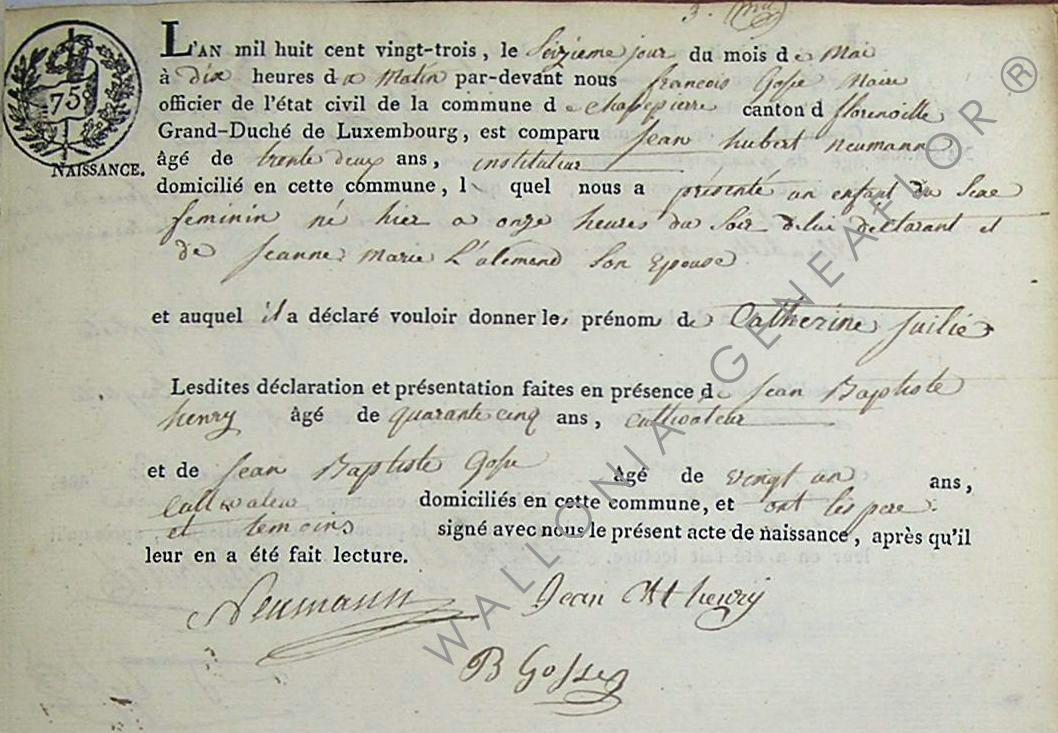 3. 
75
NAISSANCE.
L'AN mil huit cent vingt-trois, le Seizieme jour du mois de Mai
à dix heures du Matin par-devant nous francois Gosse Maire
officier de l'état civil de la commune de Chassepierre canton d florenville
Grand-Duché de Luxembourg, est comparu Jean hubert neumann
âgé de trente deux ans, instituteur
domicilié en cette commune, l quel nous a présenté un enfant du Sexe
feminin né hier a onze heures du Soir de lui declarant et
de Jeanne Marie L'alemend Son Epouse
et auquel il a déclaré vouloir donner le prénom de Catherine Juilie
Lesdites déclaration et présentation faites en présence de Jean Baptiste
henry âgé de quarante cinq ans, cultivateur
et de Jean Baptiste Gosse âgé de vingt un ans,
Cultivateur domiciliés en cette commune, et ont les pere
et temoins signé avec nous le présent acte de naissance, après qu'il
leur en a été fait lecture.
Neumann Jean Bt henry
B Gosse
WALLONIA GENEAFLOR ®